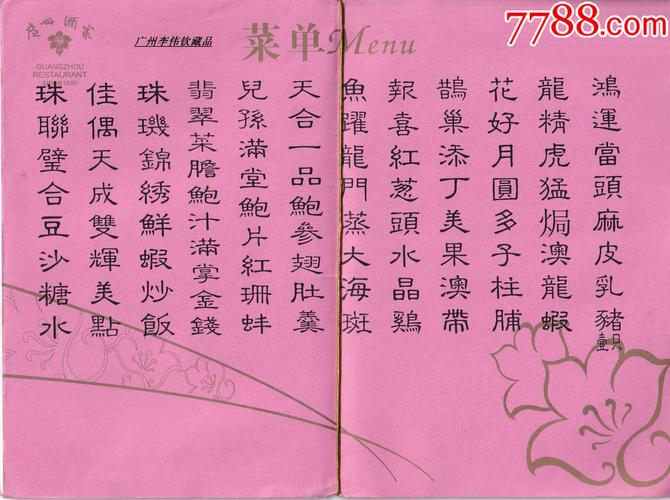 廣州酒家
GUANGZHOU
RESTAURANT
SINCE 1935
广州李伟钦藏品
菜单Menu
7788.com
鴻運當頭麻皮乳豬壹只
龍精虎猛焗澳龍蝦
花好月圓多子柱脯
鵲巢添丁美果澳帶
報喜紅葱頭水晶鷄
魚躍龍門蒸大海斑
天合一品鮑參翅肚羹
兒孫滿堂鮑片紅珊蚌
翡翠菜膽鮑汁滿掌金錢
珠璣錦綉鮮蝦炒飯
佳偶天成雙輝美點
珠聯璧合豆沙糖水